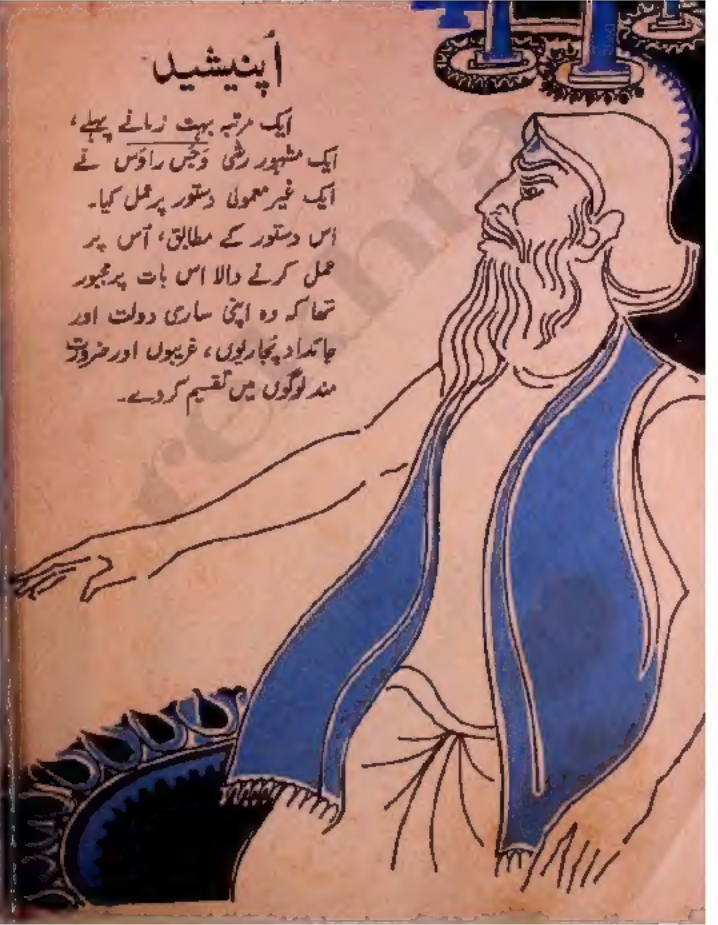 اُپنیشید
ایک مرتبہ بہت زمانے پہلے،
ایک مشہور رِشی وَجَس راوَس نے
ایک غیر معمولی دستور پر عمل کیا۔
اس دستور کے مطابق، اُس پر
عمل کرنے والا اس بات پر مجبور
تھا کہ وہ اپنی ساری دولت اور
جائداد پُجاریوں، غریبوں اور ضرورت
مند لوگوں میں تقسیم کر دے۔
rekhta